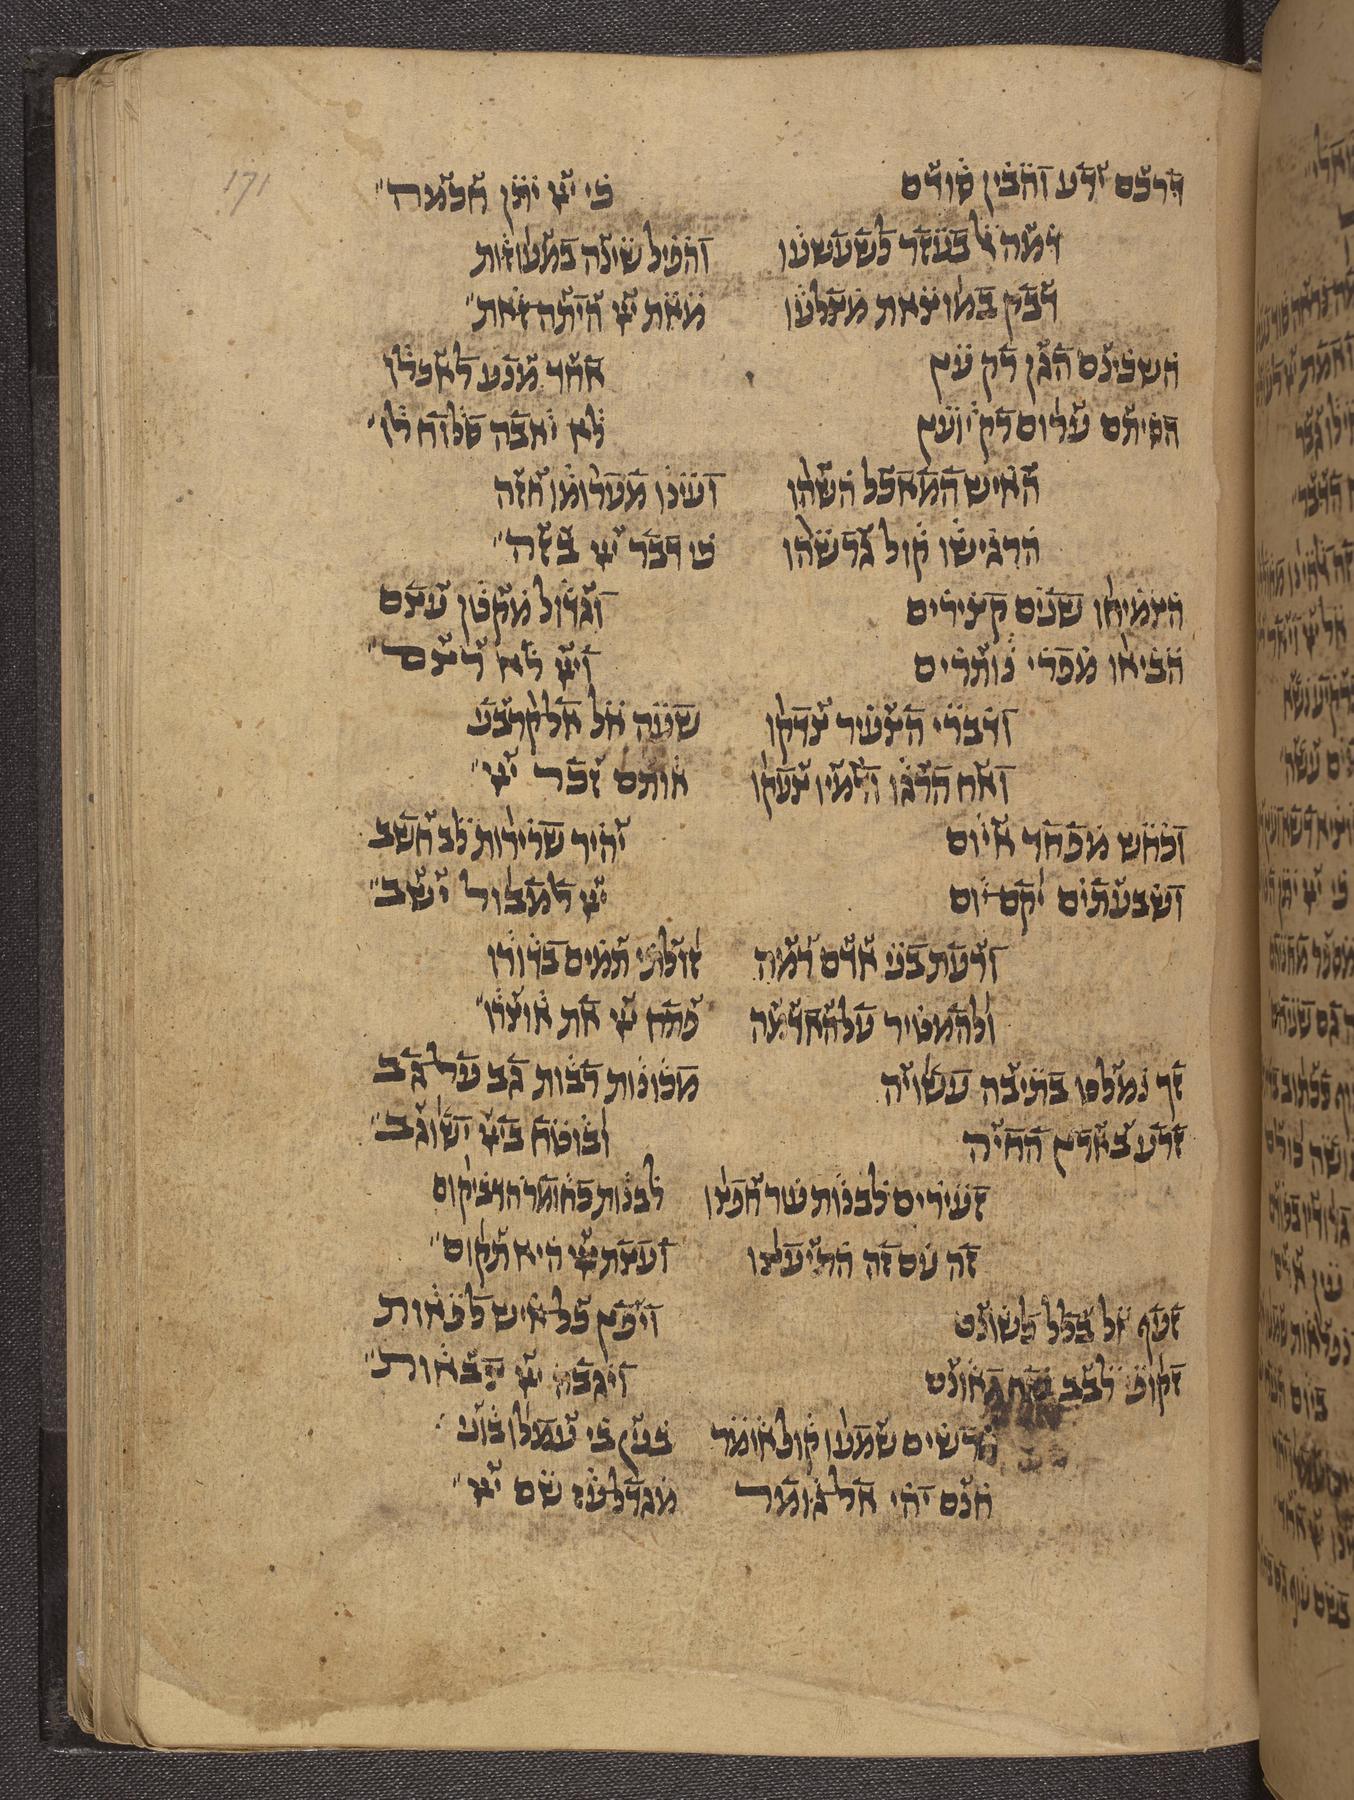 171
דרכם ידע והבין סודם כי יי יתן חכמה
דמה לו בעזר לשעשעו והפיל שינה במעוזות
דבק במוצאת מצלעו מאת יי היתה זאת
השכינם הגן רק עץ אחר מנע לאכלו
הסיתם ערום רק יועץ לא יאבה סלוח לו
האיש המאכל השהו ועינו מערומו חזה
הרגישו קול גרשהו כי דבר יי בזה
הצמיאו שנים קצירים וגדול מקטן עצם
הביאו מפרי נותרים ויי לא רצם
ודברי הצעיר צדקו שעה אל אל קרבנו
ואח הרגו ודמיו צעקו אותם זכר יי
וכחש מפחד איום יהיר שרירות לב חשב
ושבעתים יקם יום יי למבול ישב
ורעת בני אדם רמה זולתי תמים בדורו
ולהמטיר על האדמה פתח יי את אוצרו
זך נמלטו בתיבה עשויה מכונות רבות גב על גב
זרע בארץ החיה ובוטח ביי ישוגב
זעירים לבנות שר חפצו לבנות בחומר הרביקום
זה עם זה התיעצו ועצת יי היא תקום
זעף אל בלל לשונם ויפץ כל איש לפאות
זקוף לבב שח גאונם ויגבה יי צבאות
חרשים שמעו קול אומר בעץ כי עמלו בוע
חנם יהי אל גומר מגדל עז שם יי